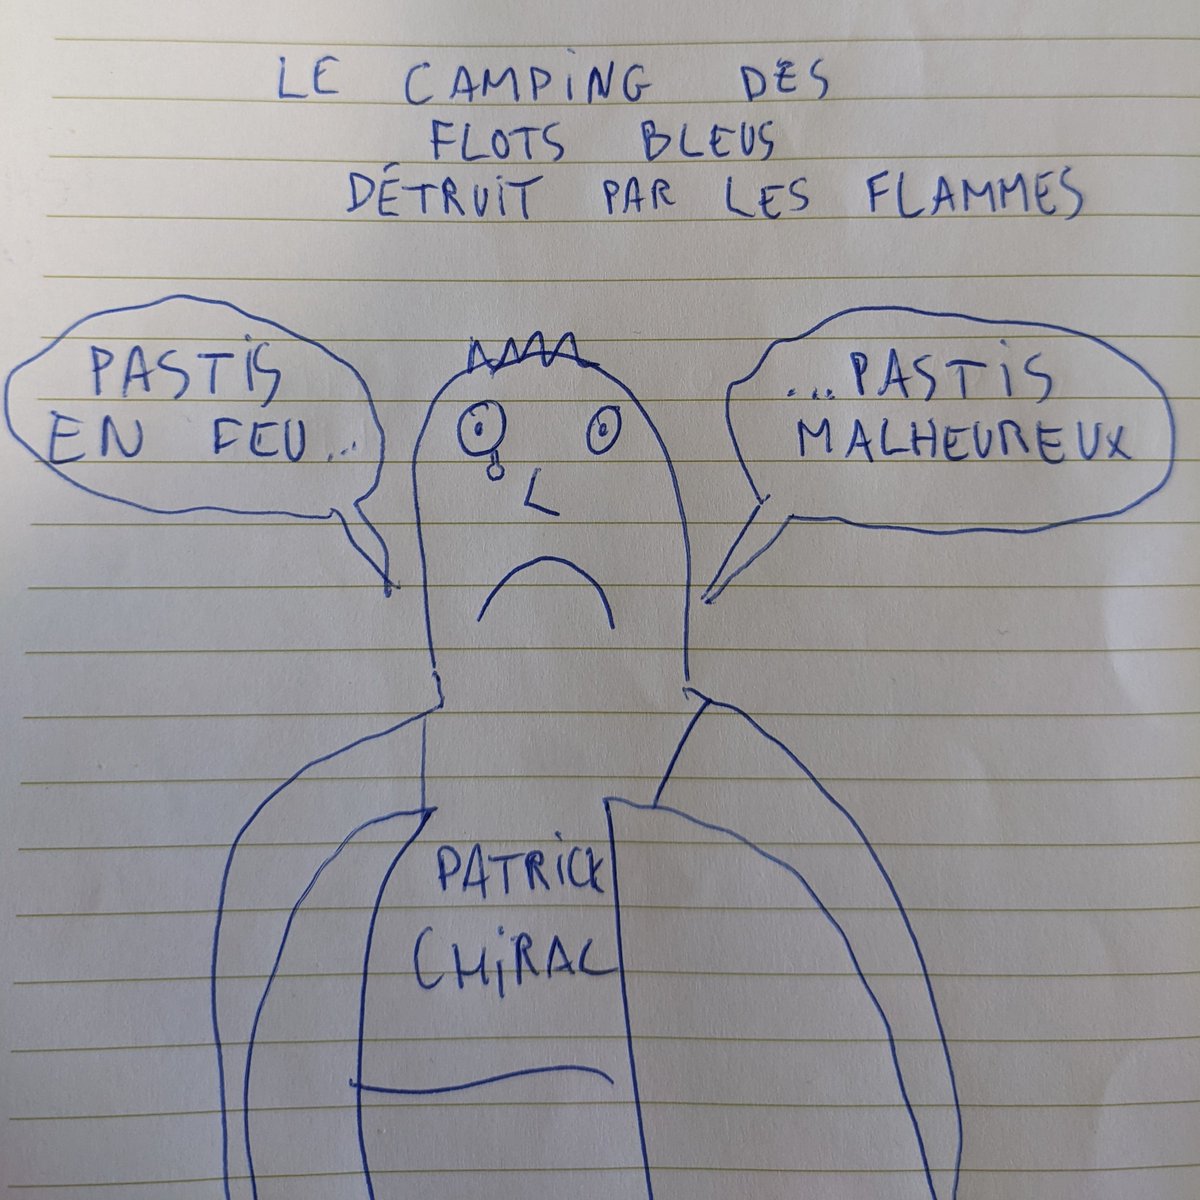 LE CAMPING DES
FLOTS BLEUS
DÉTRUIT PAR LES FLAMMES
PASTIS
EN FEU...
...PASTIS
MALHEUREUX
PATRICK
CHIRAC